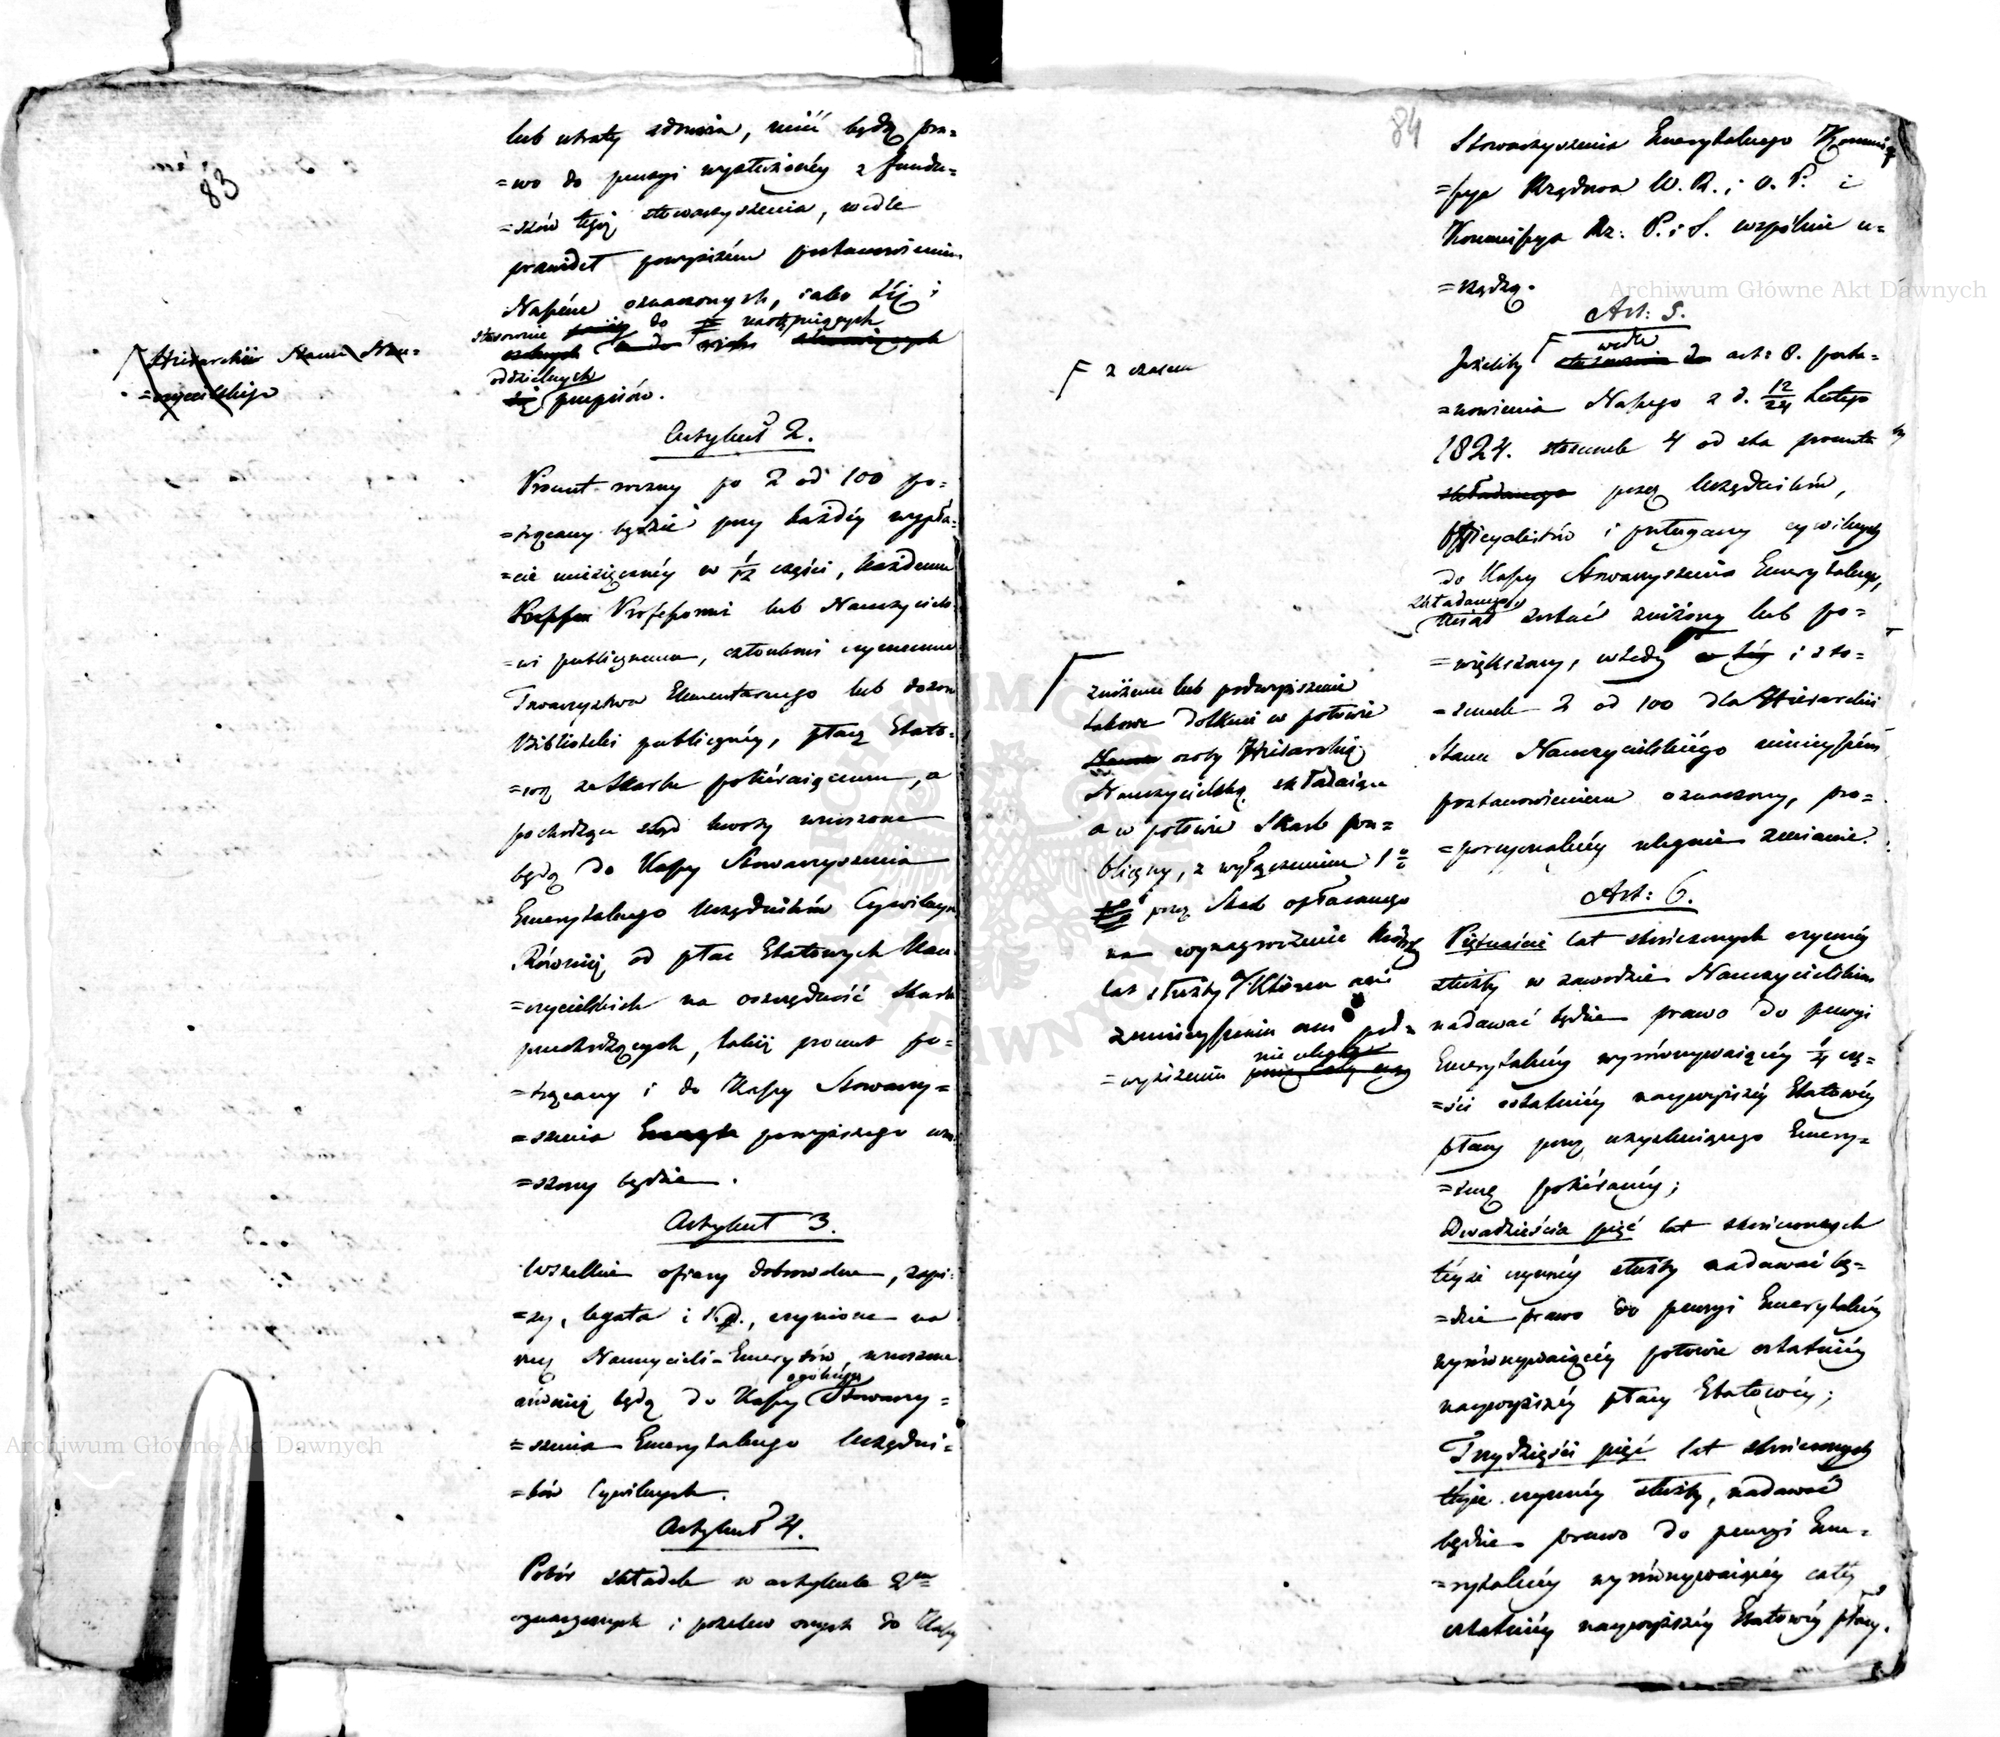 83
lub utraty zdrowia, mieć będą pra=
=wo do pensyi wysłużonéy z fundu=
=szów tegoż stowarzyszenia, wedle
prawideł powyższém postanowieniem
Naszém oznaczonych, jako też i
stosownie do następuiących
oddzielnych
przepisów.
Hierarchii Stanu Nau=
=czycielskiego
Artykuł 2.
Procent roczny po 2 od 100 po=
=trącany będzie przy każdéy wypła=
=cie miesięcznéy w 1/12 części, każdemu
Professorowi lub Nauczycielo=
=wi publicznemu, członkowi czynnemu
Towarzystwa Elementarnego lub dozoru
Biblioteki publicznéy, płacę Etato=
=wą ze Skarbu pobieraiącemu, a
pochodzące ztąd kwoty wnoszone
będą do Kassy Stowarzyszenia
Emerytalnego Urzędników Cywilnych
Równie od płac Etatowych Nau=
=czycielskich na oszczędność Skarbu
przechodzących, takiż procent po=
=trącany i do Kassy Stowarzy=
=szenia powyższego wno=
=szony będzie.
Artykuł 3.
Wszelkie ofiary dobrowolne, zapi=
=sy, legata i t.p., czynione na
rzecz Nauczycieli-Emerytów, wnoszone
również będą do Kassy ogólnéy Stowarzy=
=szenia Emerytalnego Urzędni=
=ków Cywilnych.
Artykuł 4.
Pobór składek w artykule 2m
oznaczonych i przelew onych do Kassy
84
Stowarzyszenia Emerytalnego Kommis=
=sya Rządowa W. R. i O. P. i
Kommissya Rz: P. i S. wspólnie u=
=rządzą.
Art: 5.
Jeżeliby wedle art: 8. posta=
=nowienia Naszego z d. 12/24 Lutego
1824. stosunek 4 od sta procentu
przez Urzędników,
Officyalistów i posługaczy cywilnych
do Kassy Stowarzyszenia Emerytalnego,
składanego
miał zostać zniżony lub po=
=większony, wtedy i sto=
=sunek 2 od 100 dla Hierarchii
Stanu Nauczycielskiego niniejszém
postanowieniem oznaczony, pro=
=porcyonalnéy ulegnie zmianie.
z czasem
zniżenie lub podwyższenie
takowe dotknie w połowie
osoby Hierarchią
Nauczycielską składaiące
a w połowie Skarb pu=
bliczny, z wyłączeniem 1 %
przez Skarb opłacanego
na wynagrodzenie
lat służby które ani
zmnieyszeniu ani pod=
=wyższeniu nie ulegnie
Art: 6.
Piętnaście lat skończonych czynnéy
służby w zawodzie Nauczycielskim
nadawać będzie prawo do pensyi
Emerytalnéy wyrównywaiącéy 1/4 czę=
=ści ostatniéy naywyższéy Etatowéy
płacy przez uzyskuiącego Emery=
=turę pobieranéy;
Dwadzieścia pięć lat skończonych
téyże czynnéy służby nadawać bę=
=dzie prawo do pensyi Emerytalnéy
wyrównywaiącéy połowie ostatniéy
naywyższéy płacy Etatowéy;
Trzydzieści pięć lat skończonych
téyże czynnéy służby, nadawać
będzie prawo do pensyi Eme=
=rytalnéy wyrównywaiącéy całéy
ostatniéy naywyższéy Etatowéy płacy.
Archiwum Główne Akt Dawnych
Archiwum Główne Akt Dawnych